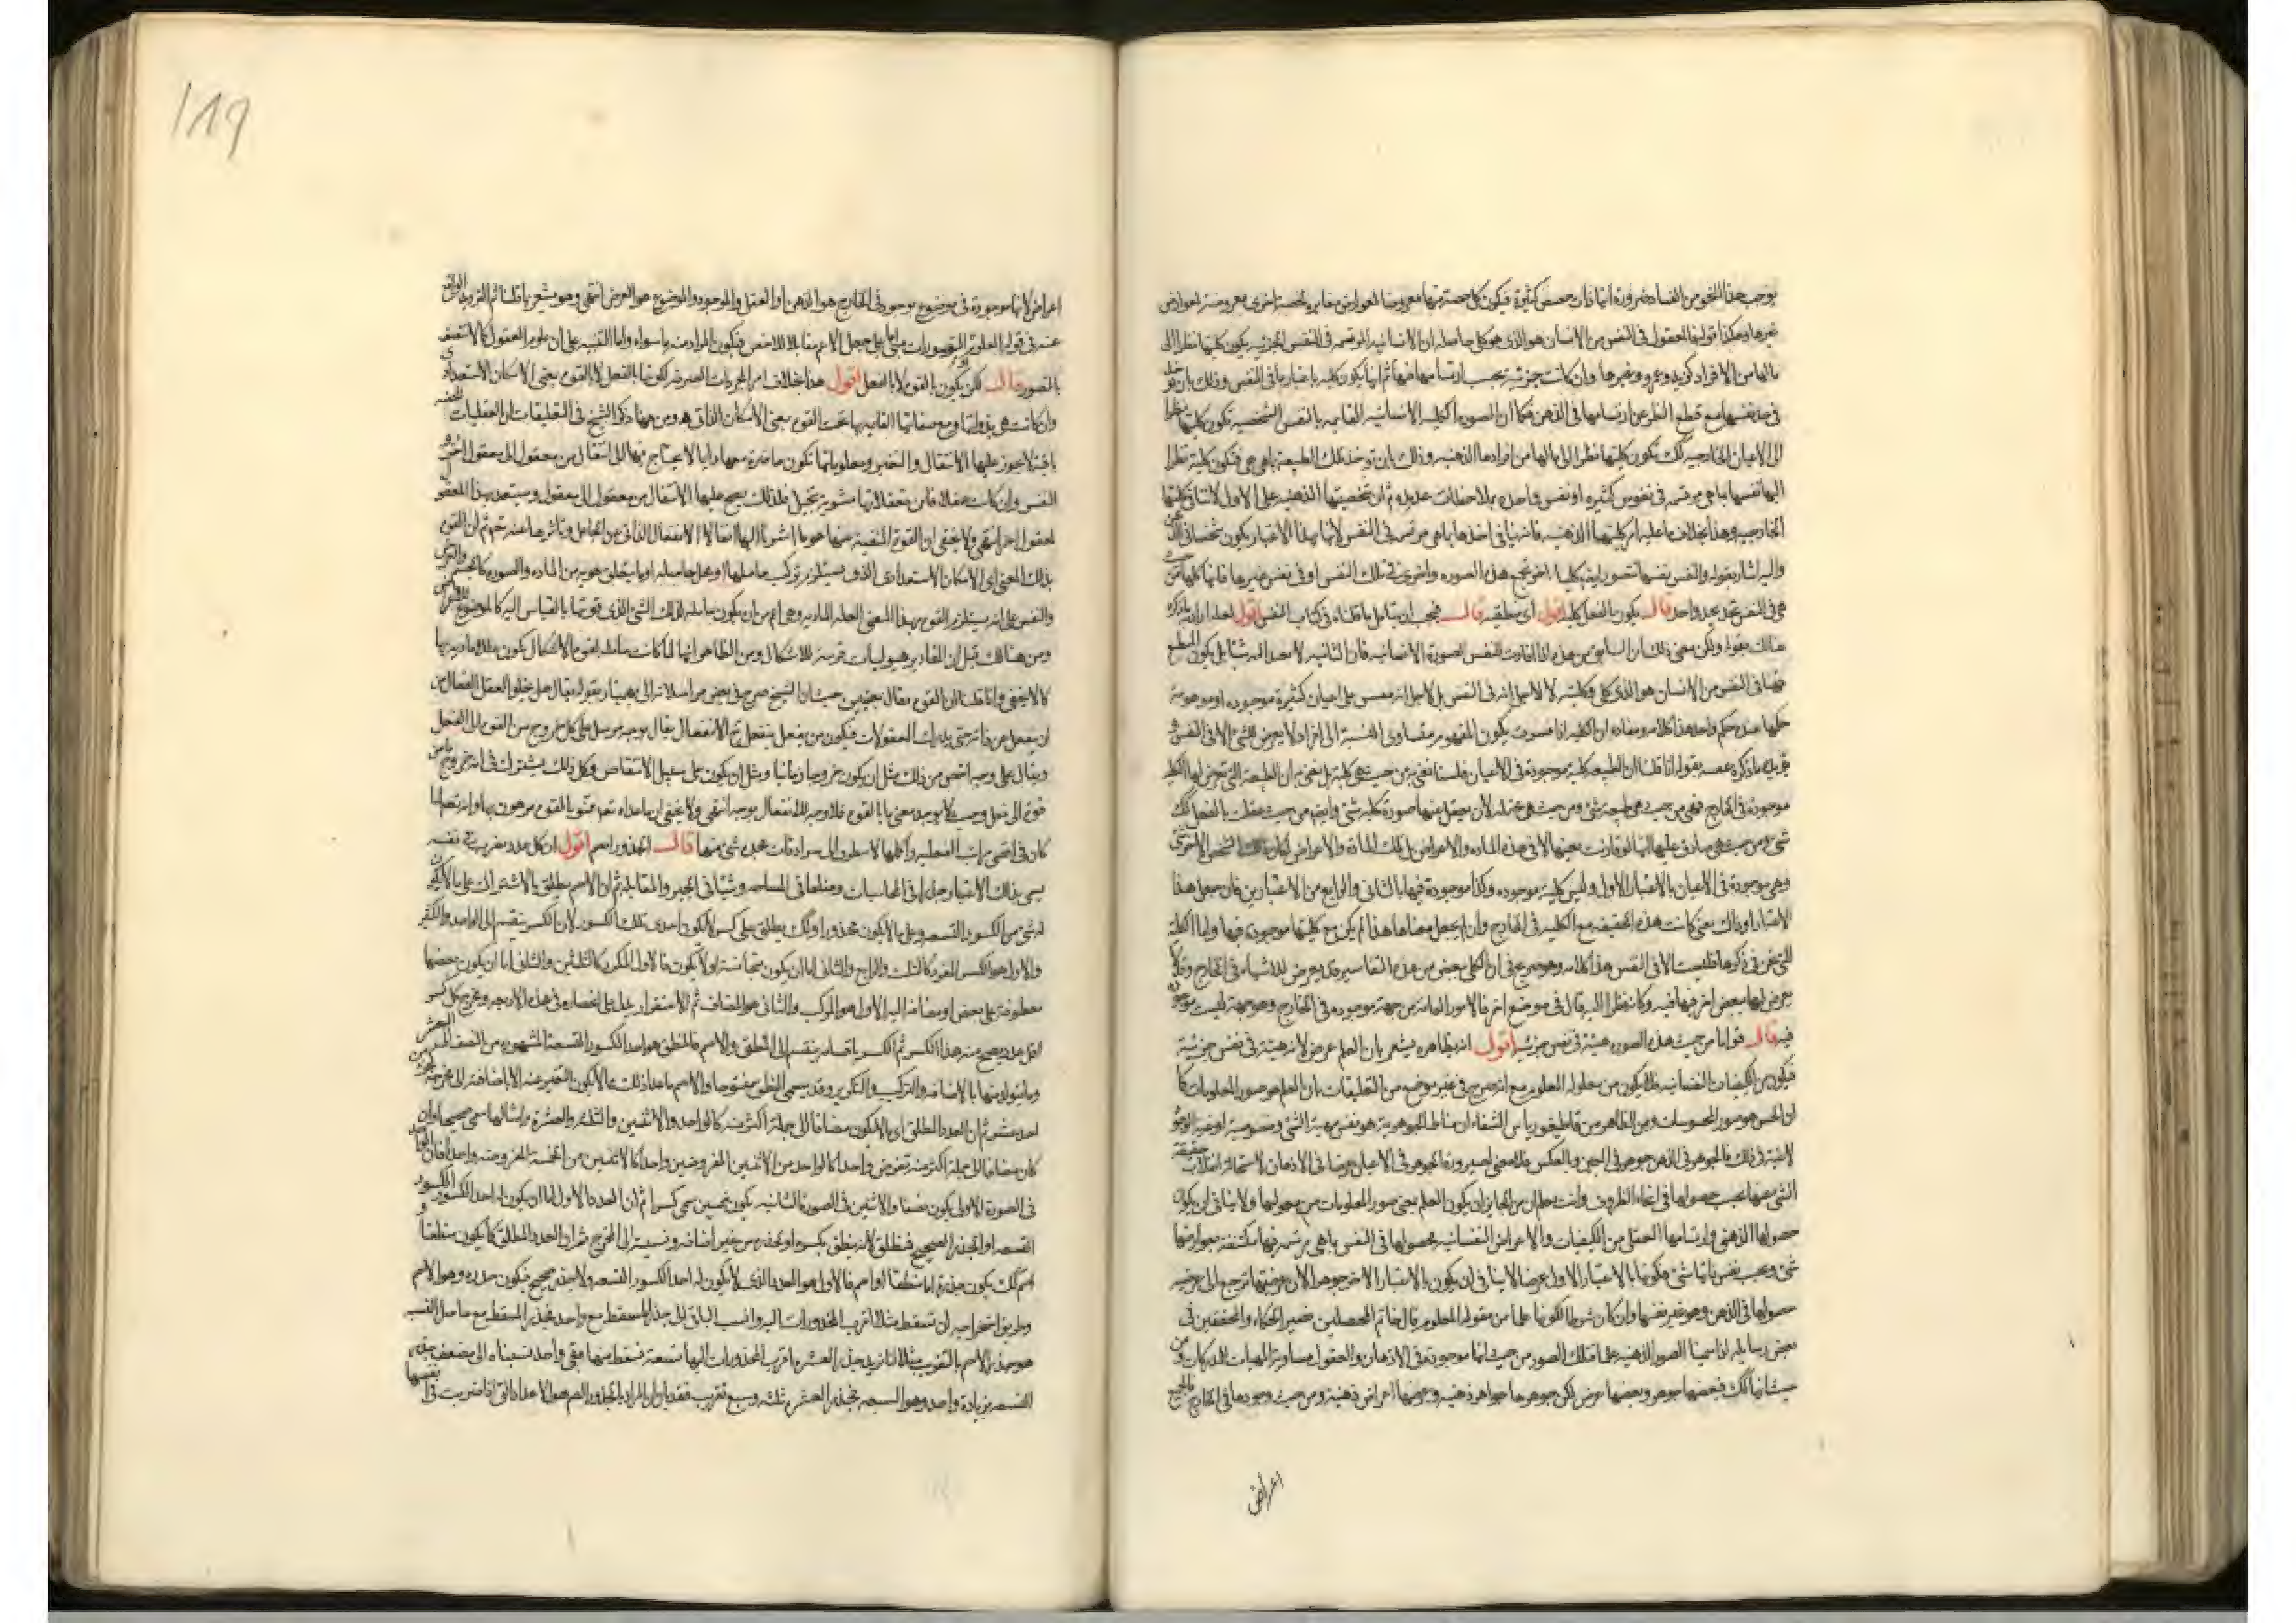 يوجب هذا النحو من الفساد ضرورة انها ذات حصص كثيرة فيكون كل حصة منها معروضة لعوارض مغايره لحصة اخرى معروضة لعوارض
غيرها وهكذا قولنا المعقول في النفس من الانسان هو الذي هو كلي حاصله ان الانسانية المرتسمة في النفس الجزئية يكون كليتها نظرا الى
مالها من الافراد كزيد وعمرو وغيرها وان كانت جزئية بحسب ارتسامها فيها ثم انها يكون كلية باعتبار ما في النفس وذلك بان
في حد نفسها مع قطع النظر عن ارتسامها في الذهن فكما ان الصورة الكلية الانسانية القايمه بالنفس الشخصيه تكون كليتها نظرا
الى الاعيان الخارجيه كك تكون كليتها نظرا الى مالها من افرادها الذهنيه وذلك بان توخذ تلك الطبيعة بما هي هي فتكون كلية نظرا
اليها نفسها بما هي مرتسمة في نفوس كثيره او نفس واحدة بملاحظات عديدة ثم ان شخصيتها الذهنيه على الاول لاتنافي كليتها
الخارجيه وهذا بخلاف ما عليه امر كليتها الذهنيه فانه ينافي اخذها بما هي مرتسمة في النفس لانها بهذا الاعتبار يكون شخصا
واليه اشار بقوله والنفس نفسها تتصور ايضا كليا اخر تجمع هذه الصوره واخرى في تلك النفس او في نفس غيرها فانها كلها من
هي في النفس تحد بحد واحد قال يكون بالفعل كلية اقول اى منطقيه قال فيجب ان يتامل ما قلناه في كتاب النفس اقول لعله اراد ما ذكره
هنالك بقوله ولكن معنى ذلك ان السابق من هذه اذا افادت النفس الصورة الانسانيه فان الثانيه لا
فيها في النفس من الانسان هو الذي كلي وكليته لا لاجل انه في النفس بل لاجل انه مقيس الى اعيان كثيرة موجوده او موهومة
حكمها عنده حكم واحد هذا كلامه ومفاده ان الكلية اذا فسرت بكون المفهوم متساوي النسبة الى افراد لا يعرض للشئ الا في النفس
يؤيده ما ذكره بقوله اذا قلنا ان الطبيعه كلية موجودة في الاعيان فلسنا نعني من حيث هي كلية بل نعني به ان الطبيعة التي تعرض لها الكلية
موجودة في الخارج فهي من حيث هي طبيعة شئ ومن حيث هي محتملة لان يعقل عنها صورة كلية شئ وايضا من حيث عقلت بالفعل كك
شئ ومن حيث هي صادق عليها انها لو قارنت بعينها لا في هذه الماده والاعراض بل تلك المادة والاعراض لكان ذلك الشخص الاخر شئ
وهي موجودة في الاعيان بالاعتبار الاول وليس كلية موجوده وكذا موجودة فيها بالثاني والرابع من الاعتبارين فان جعل هذا
الاعتبار او ذاك بمعنى كانت هذه الحقيقة مع الكلية في الخارج وان لم يجعل معناها هذا لم يكن مع كليتها موجودة فيها واما الكلية
التي نحن في ذكرها فليست الا في النفس هذا كلامه وهو صريح في ان الكلى ببعض من هذه التفاسير قد يعرض للاشياء في الخارج
يعرض لها ببعض اخر فيها فيه وكانه نظرا اليه قال في موضع اخر فالامور العامة من جهة موجوده في الخارج ومن جهة ليست موجودة
فيه قال فوا من حيث هذه الصوره هيئة في نفس جزئية اقول انه بظاهره يشعر بان العلم عرض لانه هيئة في نفس جزئية
فيكون من الكيفيات النفسانيه فلا يكون من مقولة المعلوم مع انه صرح في غير موضع من التعليقات بان العلم هو صور المعلومات كما
ان الحس هو صور المحسوسات ومن الظاهر من قاطيغورياس الشفاء ان مناط الجوهرية هو نفس مهية الشئ
لانية في ذلك فالجوهر في الذهن جوهر في العين وبالعكس فلا معنى لصيرورة الجوهر في الاعيان عرضا في الاذهان لاستحالة انقلاب حقيقة
الشئ معها بحسب حصولها في انحاء الظروف وانت بحال من الجايز ان يكون العلم بمعنى صور المعلومات من مقولتها ولا ينافي ان يكون
حصولها الذهني وارتسامها العقلي من الكيفيات والاعراض النفسانيه بحصولها في النفس بما هي مرتسمة فيها مكتنفة بعوارضها
شئ وبحسب نفس ذاتها شئ فكونها بالاعتبار الاول عرضا لاينافي ان يكون بالاعتبار الاخر جوهرا لان عرضيتها ترجع الى عرضية
حصولها في الذهن وهو غير نفسها وان كان شرطا لكونها علما من مقولة المعلوم قال خاتم المحصلين نصير الحكماء والمحققين في
بعض رسايله اذا سمينا الصور الذهنية علما فتلك الصور من حيث انها موجودة في الاذهان والعقول مساوية المهيات للمدركات ومن
حيث انها كك فبعضها جوهر وبعضها عرض لكن جوهرها جواهر ذهنية وعرضها اعراض ذهنية ومن حيث وجودها في الخارج فالجميع
اعراض
119
اعراض لانها موجودة في موضوع موجود في الخارج هو الذهن او العقل والموجود والموضوع هو العرض انتهى وهو مشعر بما قلنا ثم الترديد الواقع
عنه في قوله العلوم او التصورات مبنى على جعل الاعم مقابلا للاخص فيكون المراد منه ما سواه واما التنبيه على ان علوم العقول كلا لاتتصف
بالتصور قال لكن يكون بالقوة لا بالفعل اقول هذا بخلاف امر المجردات الصرفه لكونها بالفعل لا بالقوة بمعنى الامكان الاستعدادي
وان كانت هي بذواتها ومع صفاتها القايمه بها تحت القوة بمعنى الامكان الذاتي ومن ههنا ذكر الشيخ في التعليقات ان العقليات المحضه
باقية لايجوز عليها الانتقال والتغير ومعلوماتها تكون حاضرة معها دايما لايحتاج فيها الى انتقال من معقول الى معقول اخر
النفس وان كانت عقلا فان تعقلاتها مشوبة بتخيل فلذلك يصح عليها الانتقال من معقول الى معقول ويستعد بهذا المعقول
لمعقول اخر انتهى ولا يخفى ان القوة المنفية عنها هو ما اشرنا اليها انفا لا الانفعال الذاتي عن الجاعل وتاثرها عنه ثم ان القوة
بذلك المعنى اى الامكان الاستعدادى الذى يستلزم تركب حاملها او محل حامله او ما يتعلق هو به من الماده والصورة كالجسم
والنفس على انه يستلزم القوة بهذا المعنى العلة الماديه وهي اعم من ان يكون حاملة لذلك الشئ الذى قوتها بالقياس اليه كالموضوع للعرض
ومن هنالك قيل ان المقادير هيوليات قريبة للاشكال ومن الظاهر انها لما كانت حاملة لقوة الاشكال يكون علة مادية لها
كما لايخفى وانما قلنا ان القوة يقال بمعنيين حيث ان الشيخ صرح في بعض مراسلاته الى بهمنيار بقوله يقال هل يخلوا العقل الفعال من
ان ينفعل عن ذاته حتى يدرك المعقولات فيكون من يفعل ينفعل ثم الانفعال يقال بوجه مرسل على كل خروج من القوة الى الفعل
ويقال على وجه اخص من ذلك مثل ان يكون خروجا زمانيا ومثل ان يكون على سبيل الاستنقاص وكل ذلك يشترك في انه خروج ما من
قوة الى فعل وحيث لا يوجد معنى ما بالقوة فلا وجه للانفعال بوجه انتهى ولا يخفى ان ما عداه
كان في اقصى مراتب الفعليه واكملها قال المجذور اصم اقول ان كل عدد يضرب في نفسه
يسمى بذلك الاعتبار جذرا في المحاسبات وضلعا في المساحه وشيئا في الجبر والمقابله ثم ان الاصم يطلق بالاشتراك على ما لايكون
له شئ من الكسور التسعه وعلى ما لايكون مجذورا وكك يطلق على كسر لايكون احدى تلك الكسور لان الكسر ينقسم الى الواحد والكثير
والاول هو الكسر المفرد كالثلث والرابع والثاني اما ان يكون متجانسة او لا يكون فالاول المكرر كالثلثين والثاني اما ان يكون بعضها
معطوفة على بعض او مضافة اليه الاول هو المركب والثاني هو المضاف ثم الاستقرار يدل على انحصاره في هذه الاربعه ومخرج كل كسر
اقل عدد يصح منه هذا الكسر ثم الكسر باقسامه ينقسم الى المنطق والاصم فالمنطق هو احد الكسور التسعة المشهوره من النصف الى العشر
وما يتولد منها بالاضافه والتركيب والتكرير وقد يسمى المنطق مفتوحا والاصم ما عدا ذلك مما لايكون التعبير عنه الا باضافته الى مخرجه كجزء من
احد عشر ثم ان العدد المطلق اى ما لايكون مضافا الى جملة اكثر منه كالواحد والاثنين والثلثه والعشرة وامثالها يسمى صحيحا وان
كان مضافا الى جملة اكثر منه تفرض واحدا كالواحد من الاثنين المفروضين واحدا كالاثنين من الخمسه المفروضه واحدا فان الواحد
في الصورة الاولى يكون نصفا والاثنين في الصورة الثانيه يكون خمسين سمى كسرا ثم ان العدد الاول اما ان يكون له احد الكسور
التسعه او الجذر الصحيح فمنطق لانه ينطق بكسره او بجذره من غير اضافه ونسبة الى المخرج ثم ان العدد المطلق كما يكون منطقا او
اصم كك يكون جذره اما منطقا او اصم فالاول هو العدد الذى لايكون له احد الكسور التسعه ولا جذر صحيح فيكون جذره وهو الاصم
وطريق استخراجه ان تسقط مثلا اقرب المجذورات اليه وانسب الباقي الى جذر المسقط مع واحد فجذر المسقط مع حاصل النسبه
هو جذر الاصم بالتقريب مثلا اذا نريد جذر العشره اقرب المجذورات اليها تسعة فسقط منها بقي واحد نسبناه الى مضعف جذر
التسعه بزيادة واحد وهو السبعه فجذر العشره ثلثه وسبع تقريب فقد بان ان المراد بالمجذور الصم هو الاعداد التي اذا ضربت في نفسها